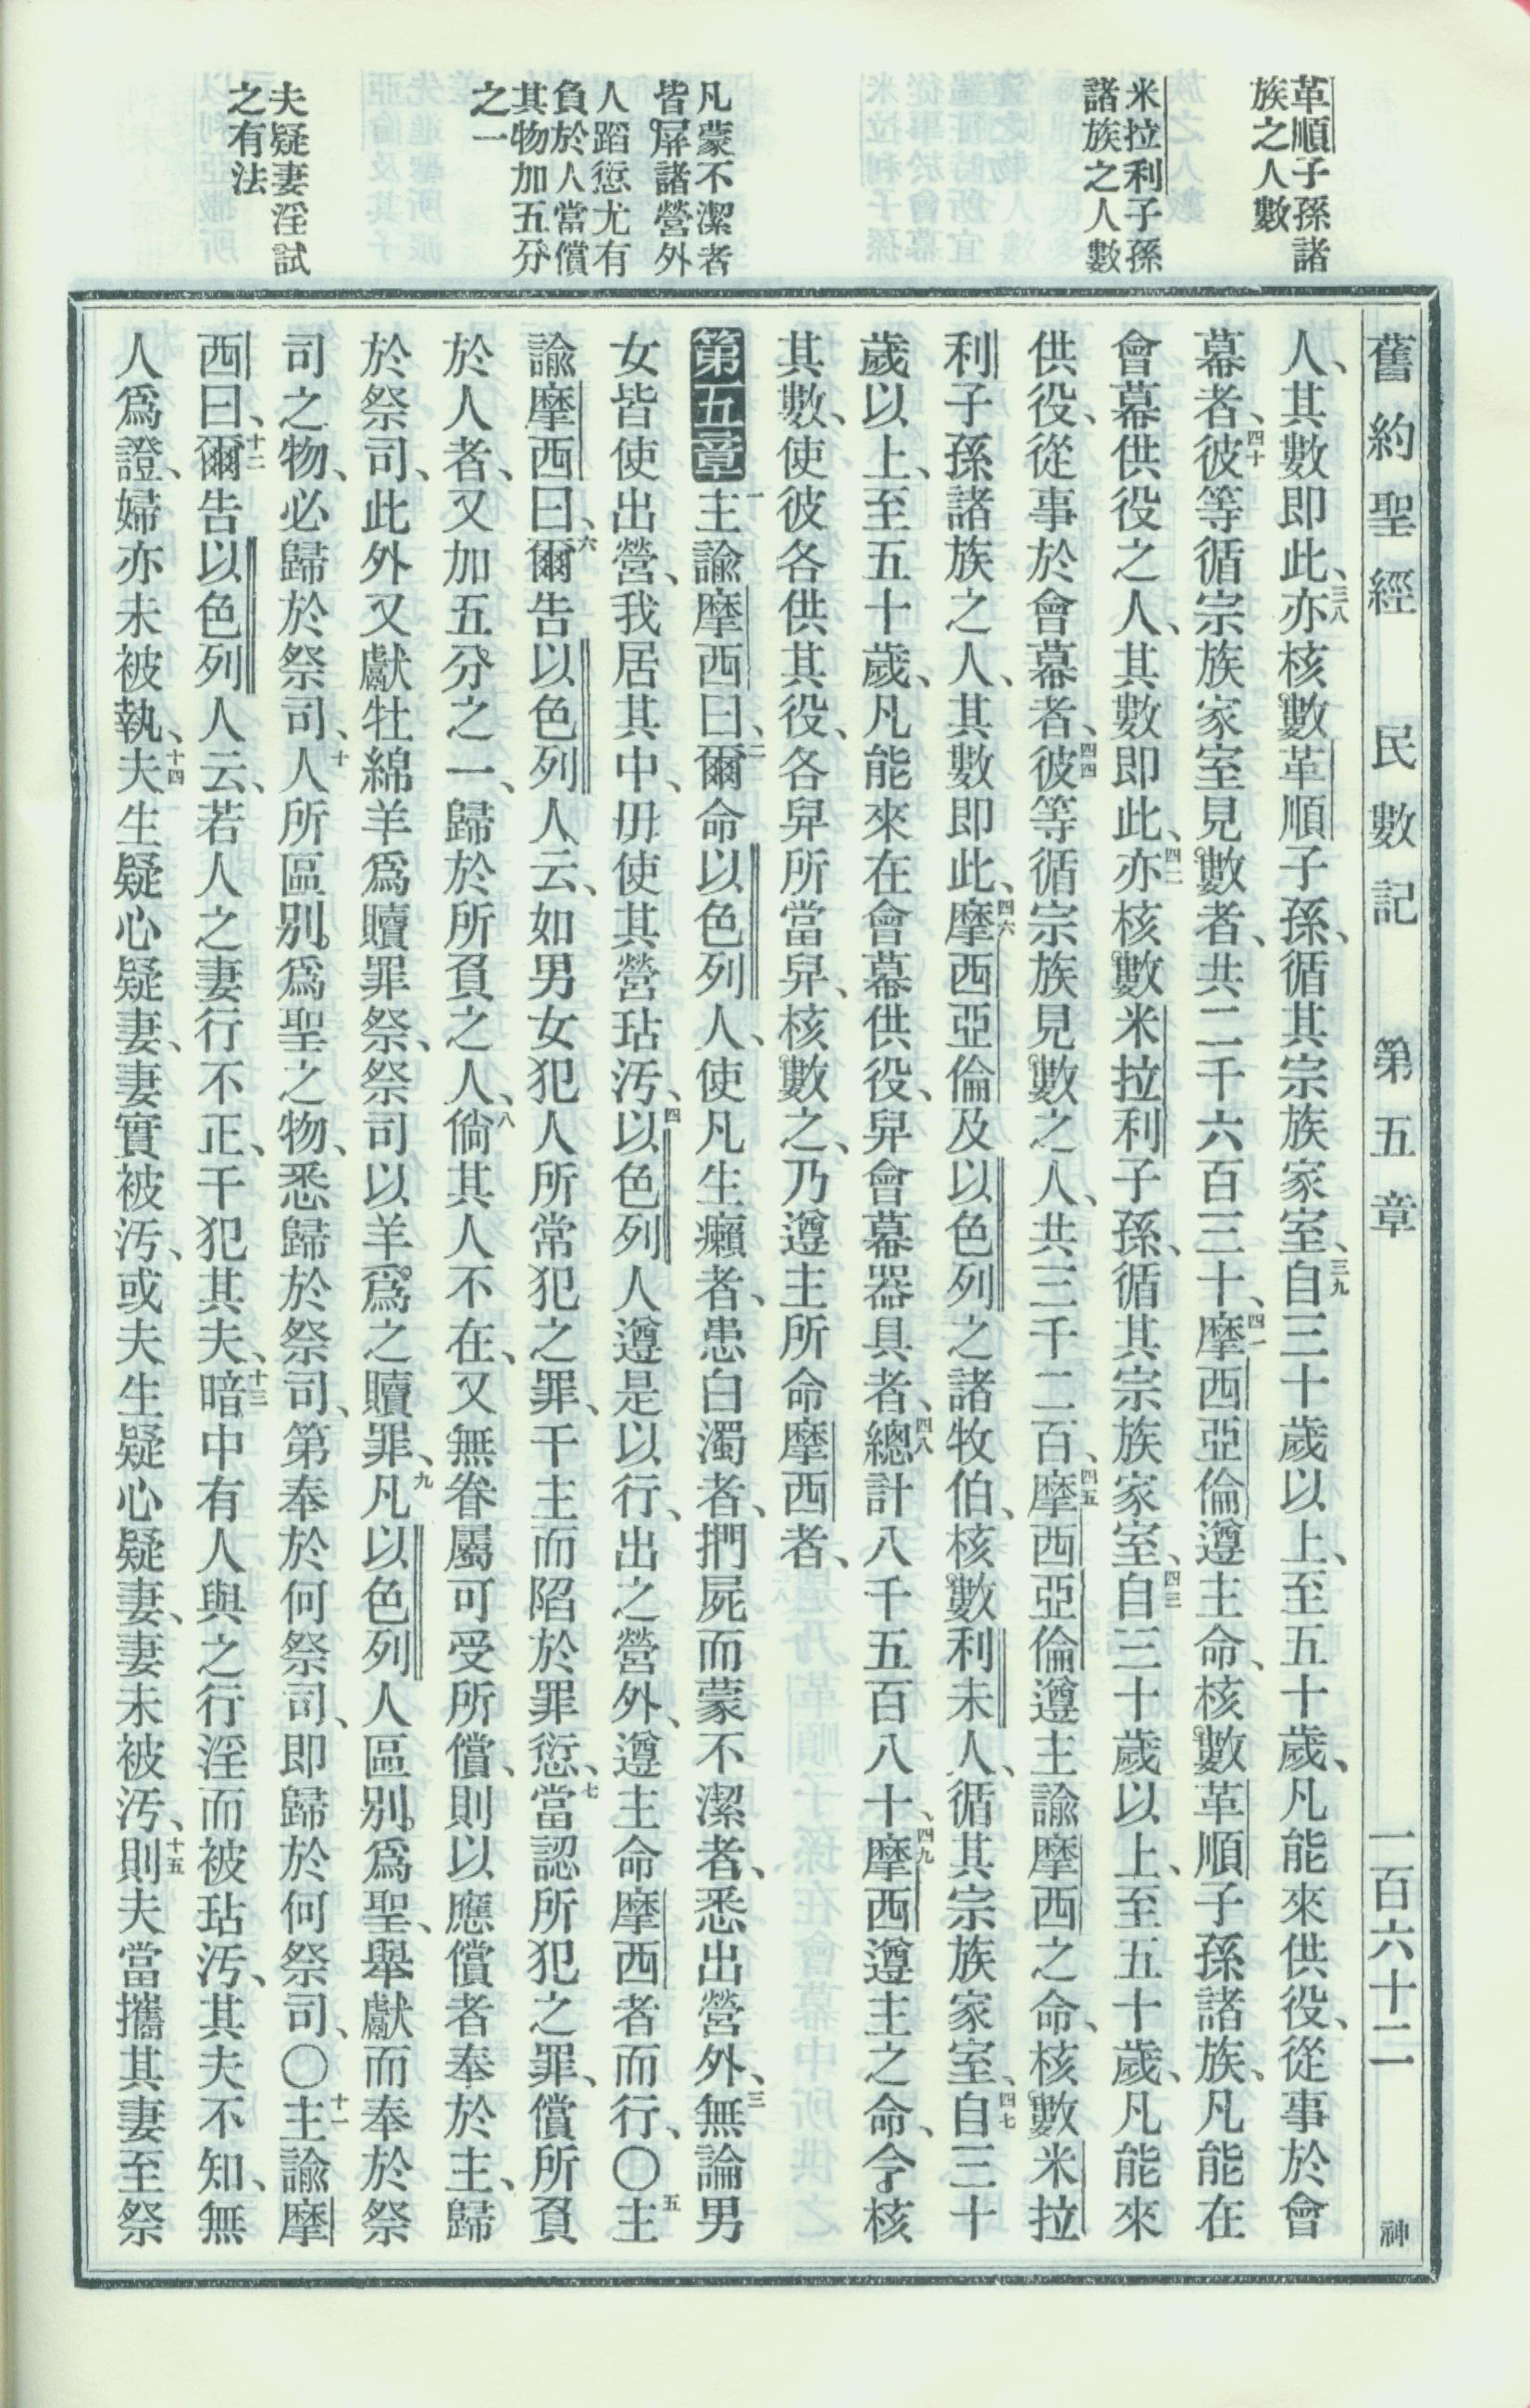 革順子孫諸
族之人數
米拉利子孫
諸族之人數
凡蒙不潔者
皆屏諸營外
人蹈愆尤有
負於人當償
其物加五分
之一
夫疑妻淫試
之有法
舊約聖經 民數記 第五章 一百六十二 神
人、其數即此、三八亦核數革順子孫、循其宗族家室、三九自三十歲以上、至五十歲、凡能來供役、從事於會
幕者、四十彼等循宗族家室見數者、共二千六百三十、四一摩西亞倫遵主命、核數革順子孫諸族、凡能在
會幕供役之人、其數即此、四二亦核數米拉利子孫、循其宗族家室、四三自三十歲以上、至五十歲、凡能來
供役、從事於會幕者、四四彼等循宗族見數之人、共三千二百、四五摩西亞倫遵主諭摩西之命、核數米拉
利子孫諸族之人、其數即此、四六摩西亞倫及以色列之諸牧伯、核數利未人、循其宗族家室、四七自三十
歲以上、至五十歲、凡能來在會幕供役、舁會幕器具者、四八總計八千五百八十、四九摩西遵主之命、令核
其數、使彼各供其役、各舁所當舁、核數之、乃遵主所命摩西者、
第五章 一主諭摩西曰、二爾命以色列人、使凡生癩者、患白濁者、捫屍而蒙不潔者、悉出營外、三無論男
女皆使出營、我居其中、毋使其營玷汚、四以色列人遵是以行、出之營外、遵主命摩西者而行、〇五主
諭摩西曰、六爾告以色列人云、如男女犯人所常犯之罪、干主而陷於罪愆、七當認所犯之罪、償所負
於人者、又加五分之一、歸於所負之人、八倘其人不在、又無眷屬可受所償、則以應償者奉於主、歸
於祭司、此外又獻牡綿羊爲贖罪祭、祭司以羊爲之贖罪、九凡以色列人區別爲聖、舉獻而奉於祭
司之物、必歸於祭司、十人所區別爲聖之物、悉歸於祭司、第奉於何祭司、即歸於何祭司、〇十一主諭摩
西曰、十二爾告以色列人云、若人之妻行不正、干犯其夫、十三暗中有人與之行淫而被玷汚、其夫不知、無
人爲證、婦亦未被執、十四夫生疑心疑妻、妻實被汚、或夫生疑心疑妻、妻未被汚、十五則夫當攜其妻至祭